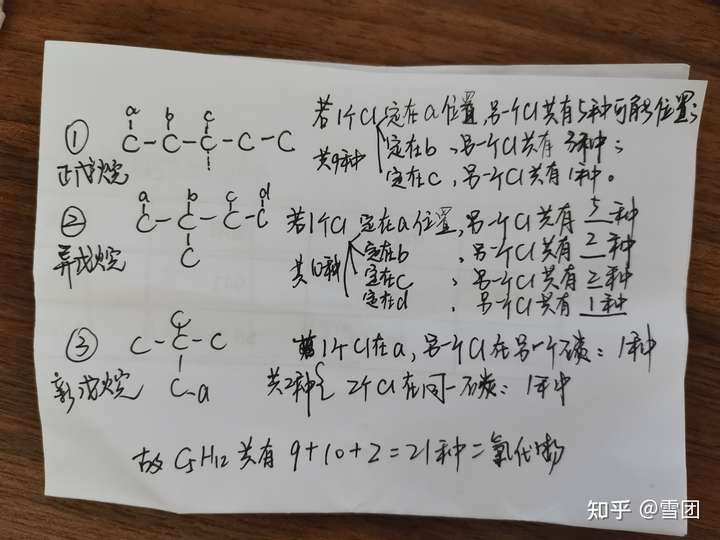 a b c
① C-C-C-C-C 若1个Cl定在a位置,另一个Cl共有5种可能位置;
正戊烷 共9种 定在b,另一个Cl共有3种;
定在c,另一个Cl共有1种。
a b c d
② C-C-C-C 若1个Cl定在a位置,另一个Cl共有5种
C 定在b,另一个Cl共有2种
异戊烷 共10种 定在c,另一个Cl共有2种
定在d,另一个Cl共有1种
C
③ C-C-C 若1个Cl在a,另一个Cl在另一个碳:1种
新戊烷 C-a 共2种 2个Cl在同一碳:1种
故C5H12共有9+10+2=21种二氯代物
知乎 @雪团